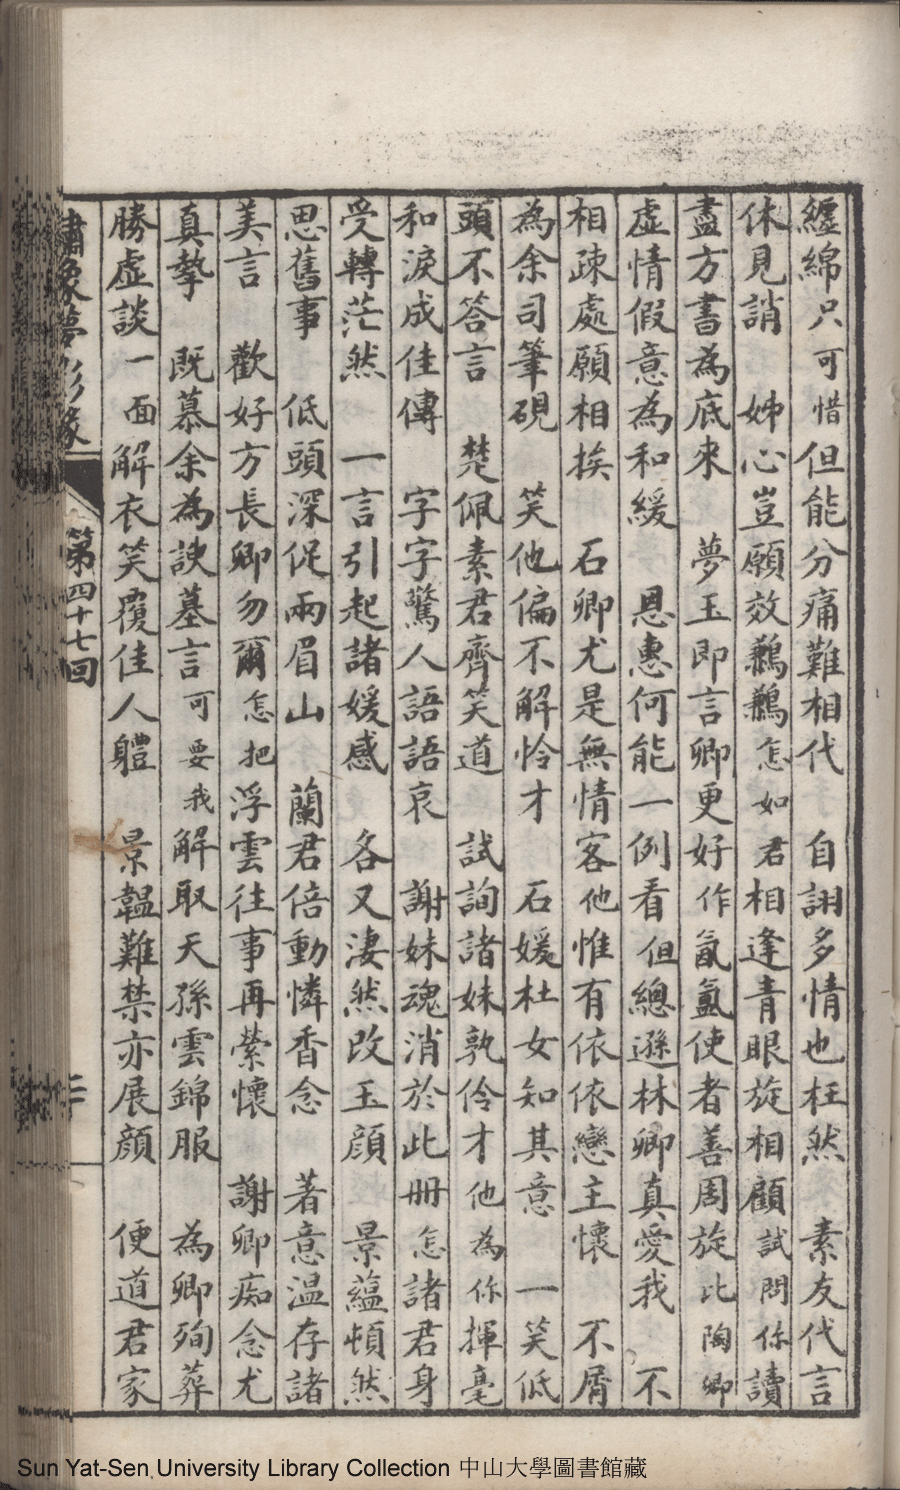 纏綿只可惜但能分痛難相代 自詡多情也枉然 素友代言
休見誚 姊心豈願效鶼鶼怎如君相逢青眼旋相顧試問係讀
盡方書為底來 夢玉即言卿更好作氤氳使者善周旋比陶卿
虛情假意為和緩 恩惠何能一例看但總遜林卿真愛我 不
相疎處願相挨 石卿尤是無情客他惟有依依戀主懷 不屑
為余司筆硯 笑他偏不解怜才 石媛杜女知其意 一笑低
頭不答言 楚佩素君齊笑道 試詢諸妹孰伶才他為你揮毫
和淚成佳傳 字字驚人語語哀 謝妹魂消於此冊怎諸君身
受轉茫然 一言引起諸媛感 各又淒然改玉顔 景蘊頓然
思舊事 低頭深促兩眉山 蘭君倍動憐香念 著意温存諸
美言 歡好方長卿勿爾怎把浮雲往事再縈懷 謝卿痴念尤
真摯 既慕余為諛墓言可要我解取天孫雲錦服 為卿殉葬
勝虛談一面解衣笑覆佳人軆 景韞難禁亦展顔 便道君家
繡像夢影緣 第四十七回
Sun Yat-Sen University Library Collection 中山大學圖書館藏